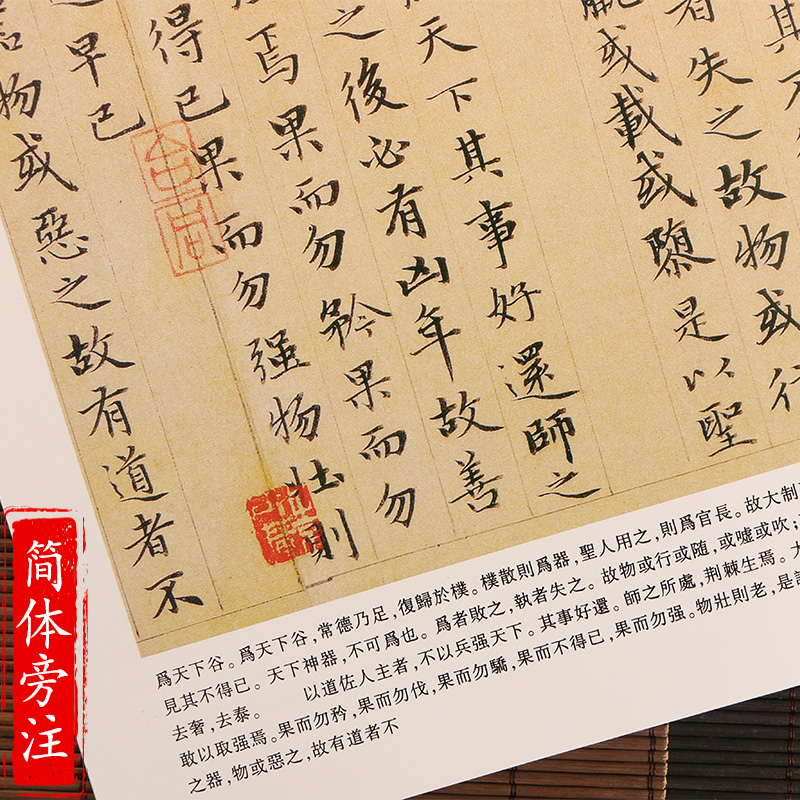 其不
者失之故物或行
羸或載或隳是以聖
天下其事好還師之
之後必有凶年故善
焉果而勿矜果而勿
得已果而勿强物壯則
早已
物或惡之故有道者不
爲天下谷。爲天下谷,常德乃足,復歸於樸。樸散則爲器,聖人用之,則爲官長。故大制
見其不得已。天下神器,不可爲也。爲者敗之,執者失之。故物或行或随,或噓或吹;
去奢,去泰。 以道佐人主者,不以兵强天下。其事好還。師之所處,荆棘生焉。大
敢以取强焉。果而勿矜,果而勿伐,果而勿驕,果而不得已,果而勿强。物壯則老,是
之器,物或惡之,故有道者不
简体旁注